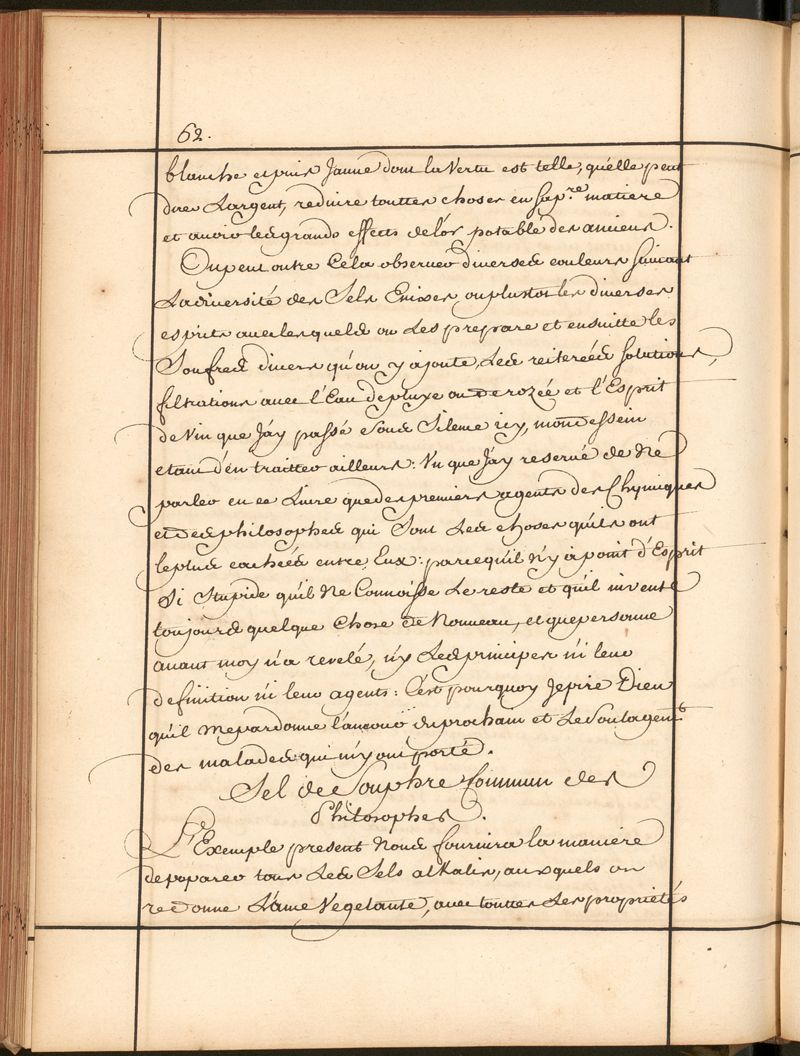 62.
blanche et puis Jaune dont la Vertu est telle, qu'elle peut
L'argent, reduire touttes choses en sa p.re matiere
et avoir les grands effects de l'or potable des anciens.
On peut outre Cela observer diverses couleurs suivant
La diversité des Sels Enixes, ou plustot les diverses
esprits avec lesquels on Les prepare et ensuitte les
Soufres divers qu'on y ajoute, Les reiterées solutions,
filtrations avec l'Eau de pluye ou de rozée et l'Esprit
de Vin que J'ay passé sous Silence icy, mon dessein
etant d'en traitter ailleurs: Vu que J'ay reservé de Ne
parler en ce Livre que des premiers agents des Chymiques
et des philosophes qui Sont Les choses qu'ils ont
le plus cachées entre Eux: parce qu'il n'y a point d'Esprit
Si Stupide qu'il Ne Connoisse Le reste et qu'il n'invente
toujours quelque Chose de Nouveau, et que personne
avant moy n'a revelé, n'y Les principes n'i leur
definition n'i leur agents: C'est pourquoy Je prie Dieu
qu'il Me pardonne l'amour du prochain et Le Soulagent
des malades qui m'y ont porté.
Sel de Souphre Commun des
Philosophes.
L'Exemple present Nous fournira la maniere
de preparer tous Les Sels alKalis, auxquels on
redonne L'ame Vegetante, avec touttes Les proprietés